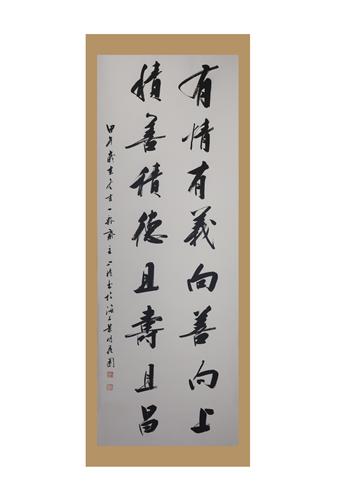 有情有義向善向上
積善積德且壽且昌
甲午歲末